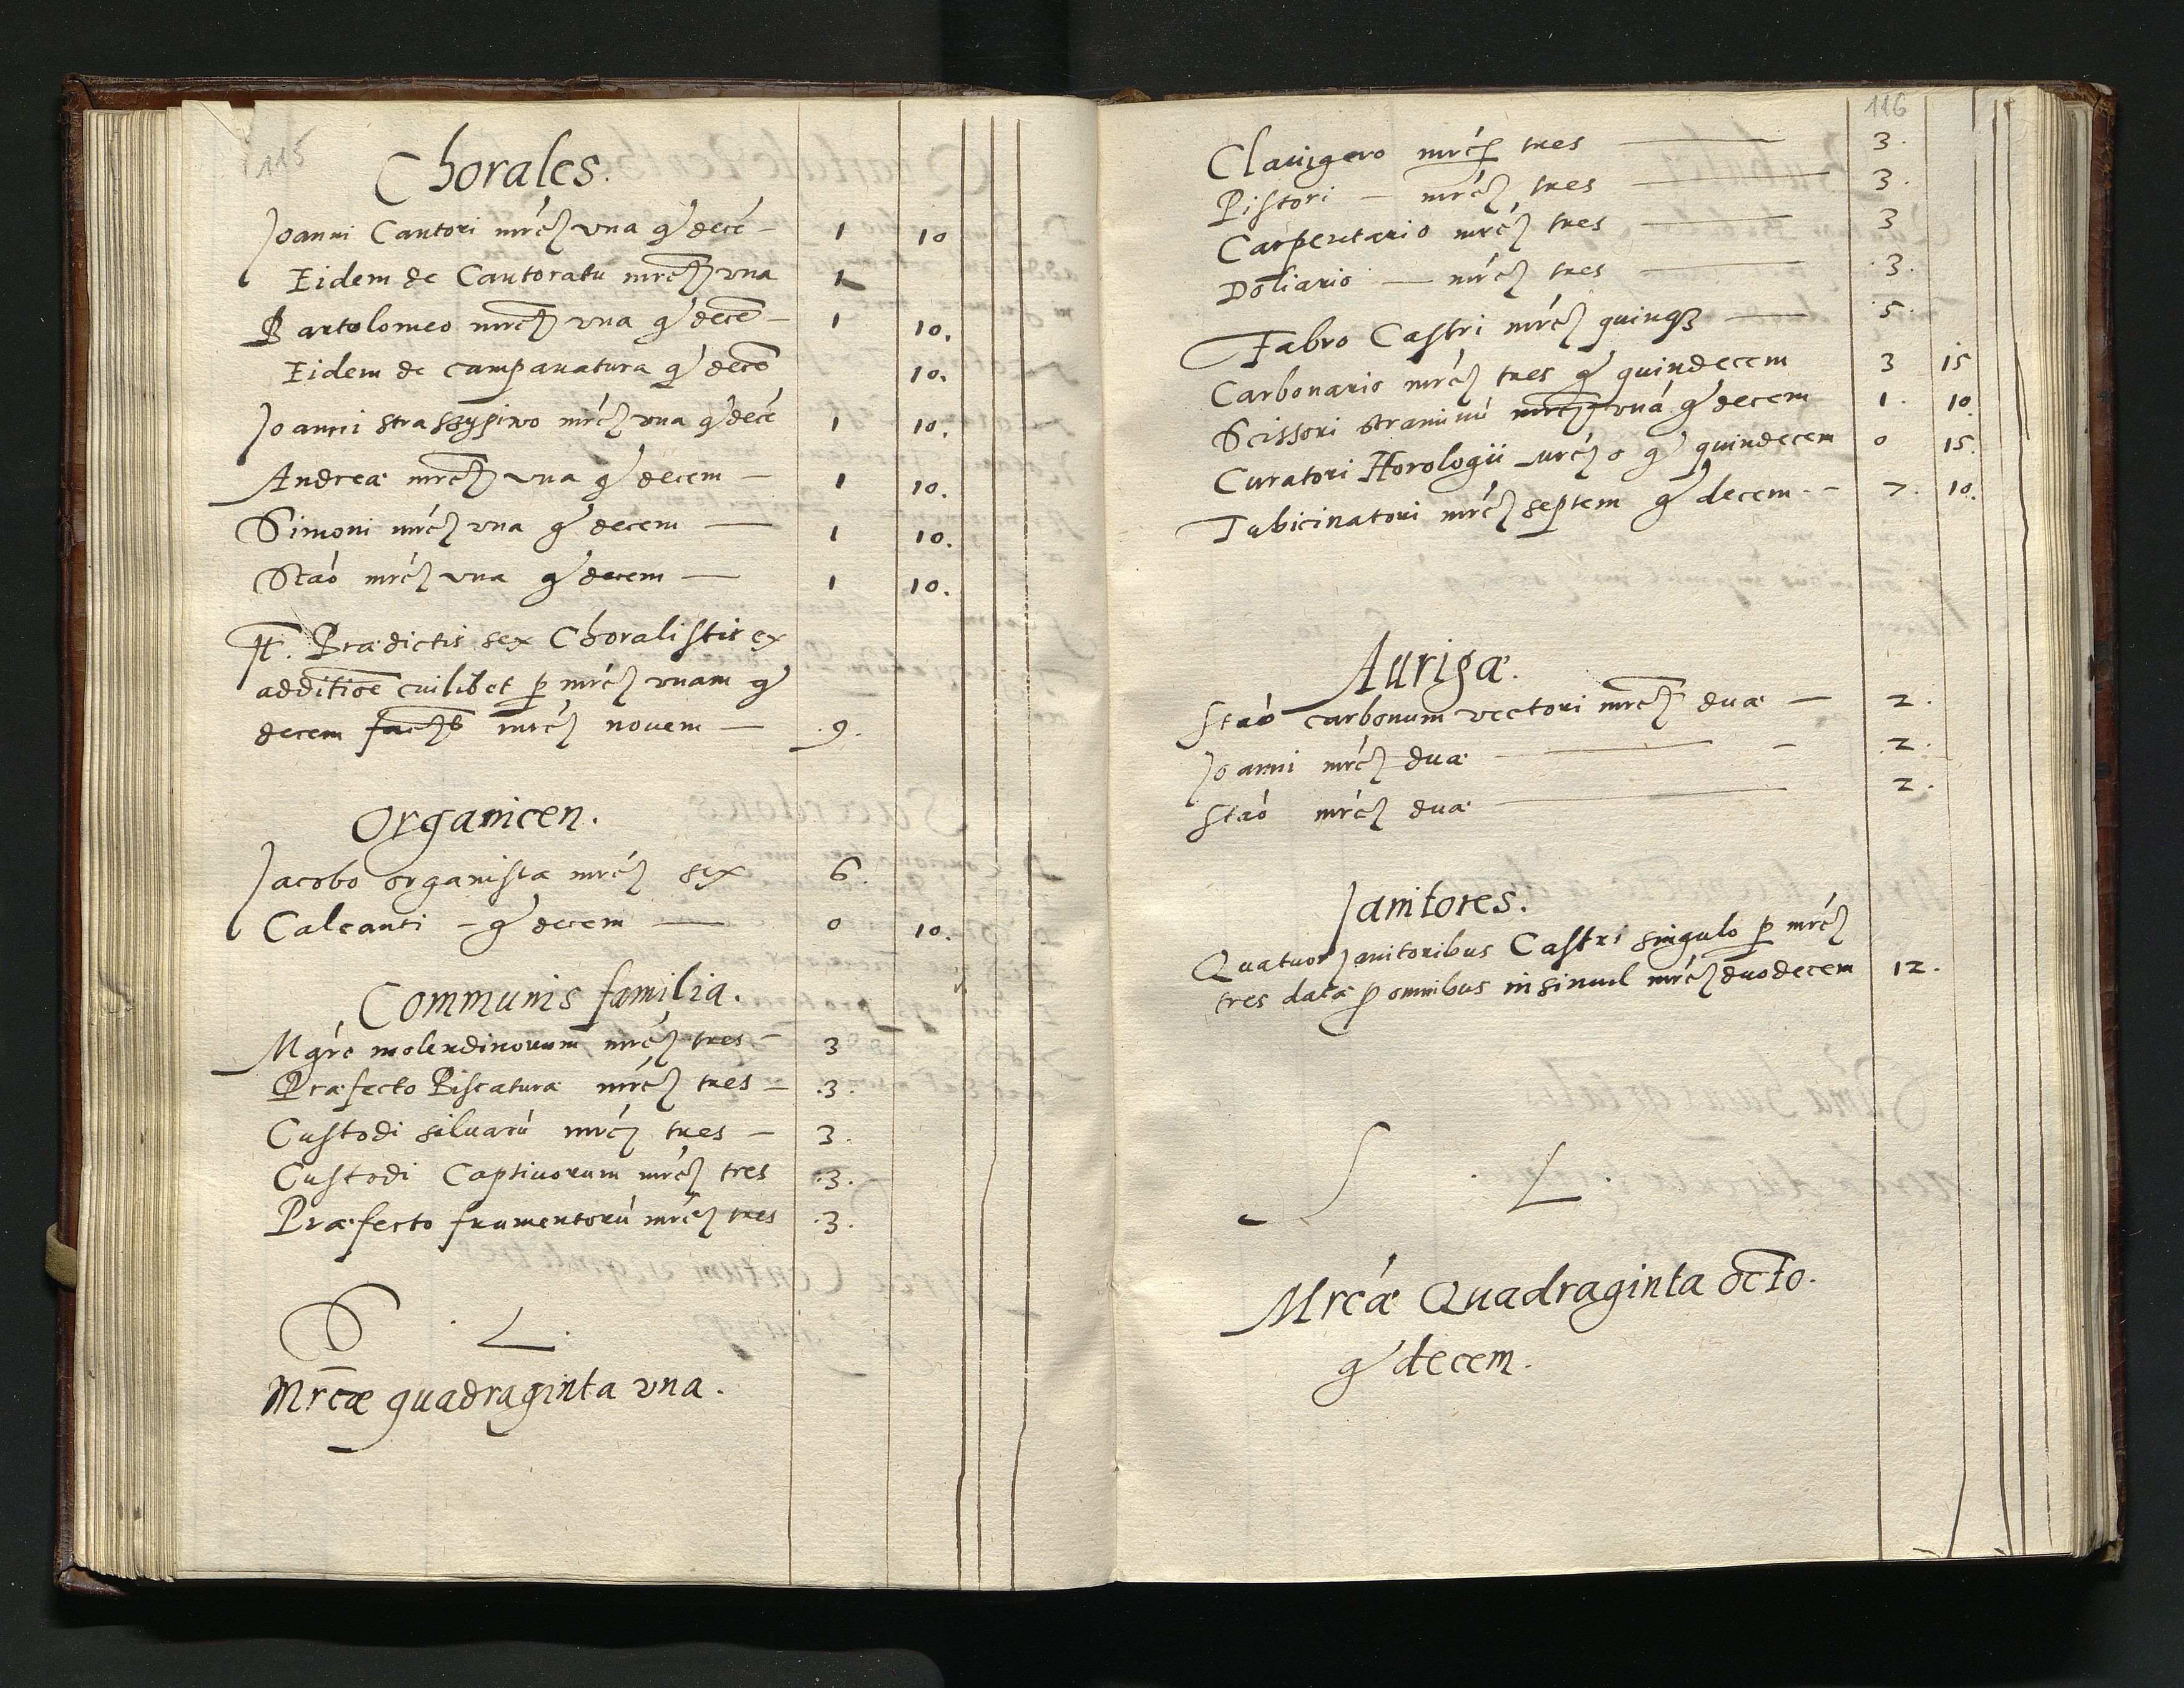 115
Chorales.
Joanni Cantori mrć vna gʳ decē — 1 10
Eidem de Cantoratu mrć vna 1
Bartolomeo mrć vna gʳ decē — 1 10.
Eidem de campanatura gʳ decē 10.
Joanni strassypiwo mrć vna gʳ decē 1 10.
Andreæ mrć vna gʳ decem — 1 10.
Simoni mrć vna gʳ decem — 1 10.
Stāo mrć vna gʳ decem — 1 10.
It. Prædictis sex Choralistis ex
additiōe cuilibet p mrć vnam gʳ
decem mrć nouem — .9.
Organicen.
Jacobo organista mrć sex 6.
Calcanti – gʳ decem — 0 10.
Communis familia.
Mgrō molendinorum mrć tres – 3
Præfecto Piscaturæ mrć tres – .3.
Custodi siluarū mrć tres – 3.
Custodi Captiuorum mrć tres .3.
Præfecto frumentorū mrć tres .3.
S . L .
Mrcæ quadraginta vna.
116
Clauigero mrć tres — 3.
Pistori — mrć tres — 3.
Carpentario mrć tres — 3
Doliario — mrć tres — .3.
Fabro Castri mrć quinqȝ — 5.
Carbonario mrć tres gʳ quindecem 3 15
Scissori straminū mrć vnā gʳ decem 1. 10.
Curatori Horologii mrć 0 gʳ quindecem 0 15.
Tubicinatori mrć septem gʳ decem. – 7. 10.
Aurigæ.
Stāo carbonum vectori mrć duæ — 2.
Joanni mrć duæ — .2.
Stāo mrć duæ — 2.
Janitores.
Quatuor Janitoribus Castri singulo p mrć
tres datæ p omnibus insimul mrć duodecem 12.
S . L .
Mrcæ Quadraginta octo.
gʳ decem.